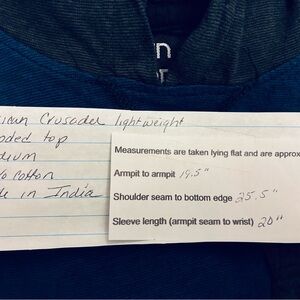 n
ican Crusader lightweight
oded top
dium
% cotton
de in India
Measurements are taken lying flat and are approx
Armpit to armpit 19.5"
Shoulder seam to bottom edge 25.5"
Sleeve length (armpit seam to wrist) 20"